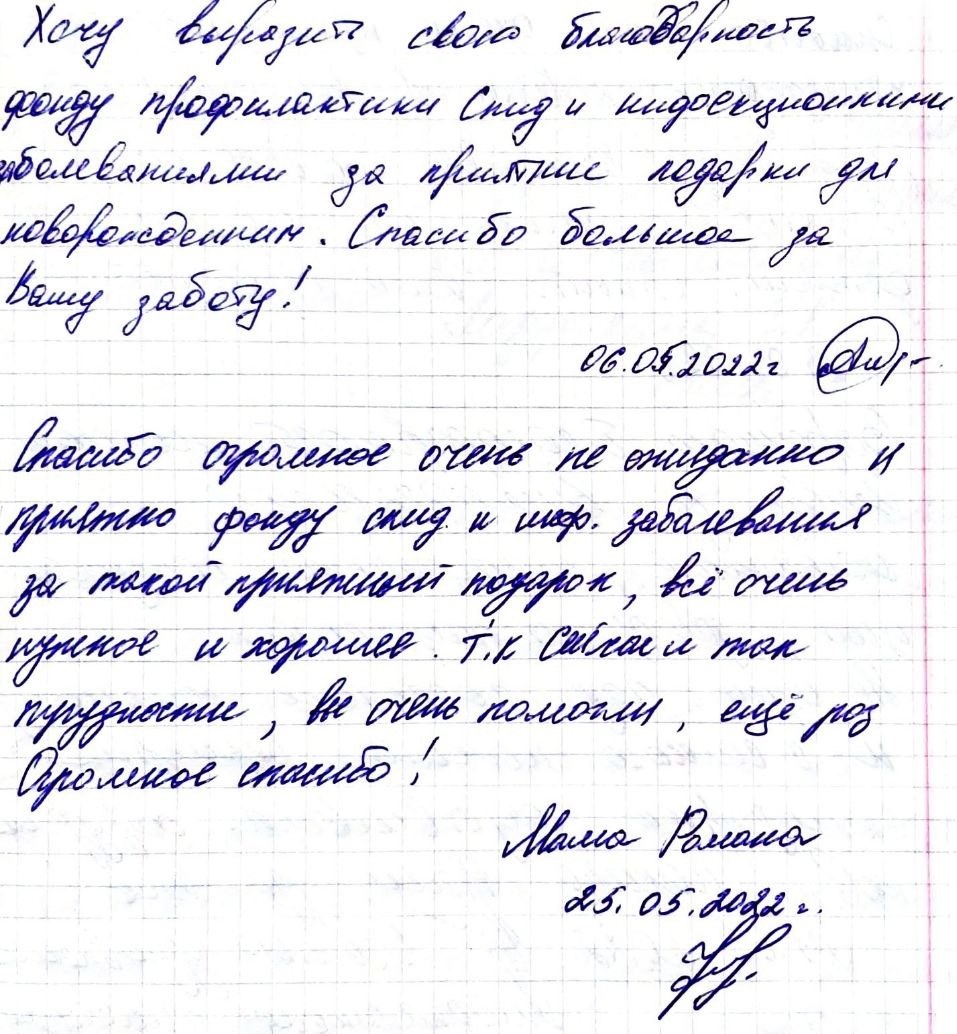 Хочу выразить свою благодарность
фонду профилактики Спид и индоекционными
заболеваниями за приятние подарки для
новорожденним. Спасибо большое за
Вашу заботу!
06.05.2022г
Спасибо огромное очень не ожиданно и
приятно фонду спид и инф. заболевания
за такой приятный подарок, всё очень
нужное и хорошее. т.к сейчас и так
трудности, вы очень помогли, ещё раз
Огромное спасибо!
Мама Романа
25.05.2022г.